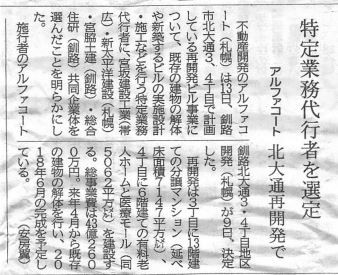 特定業務代行者を選定
アルファコート 北大通再開発で
不動産開発のアルファコ
ート(札幌)は13日、釧路
市北大通3、4丁目で計画
している再開発ビル事業に
ついて、既存の建物の解体
や新築するビルの実施設計
・施工などを行う特定業務
代行者に、宮坂建設工業(帯
広)・新太平洋建設(札幌)
・宮脇土建(釧路)・総合
住研(釧路)共同企業体を
選んだことを明らかにし
た。
施行者のアルファコート
釧路北大通3・4丁目地区
開発(札幌)が9日、決定
した。
再開発は3丁目に13階建
ての分譲マンション(延べ
床面積7147平方㍍)、
4丁目に6階建ての有料老
人ホームと医療モール(同
5062平方㍍)を建設す
る。総事業費は43億260
0万円。来年4月から既存
の建物の解体を行い、20
18年8月の完成を予定し
ている。 (安房篤)